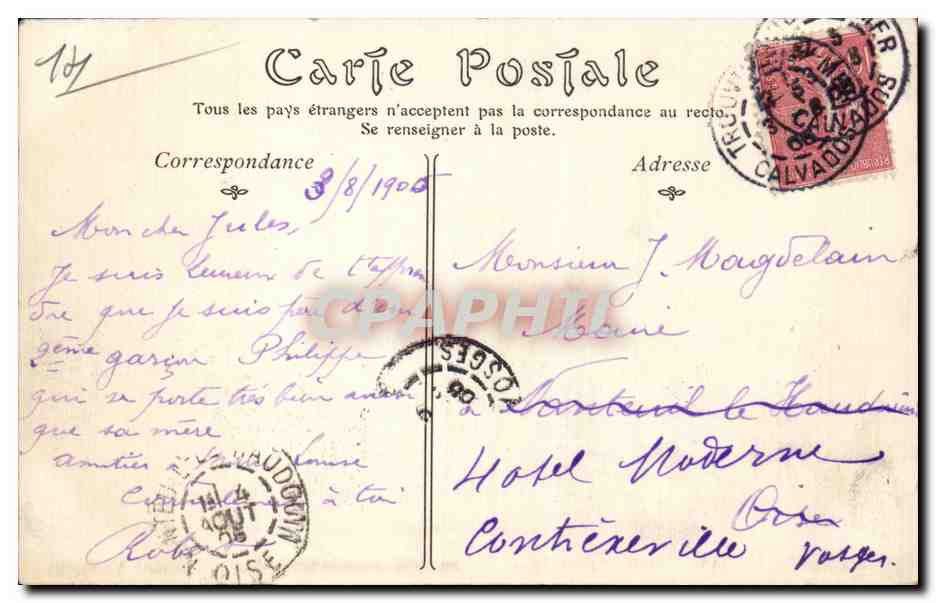 14
Carte Postale
Tous les pays étrangers n'acceptent pas la correspondance au recto.
Se renseigner à la poste.
Correspondance
3/8/1905
Mon cher Jules,
Je suis heureux de t'appren
dre que je suis père d'un
2ème garçon Philippe
qui se porte très bien ainsi
que sa mère
amitiés à Louise
Cordialement à toi
Adresse
Monsieur J. Magdelain
Maire
à Nanteuil le Haudouin
Hotel Moderne
Oise
Contrexeville
Vosges.
CALVADOS
CALVADOS
VOSGES
HAUDOUIN
4
AOUT
05
OISE
CPAPHIL